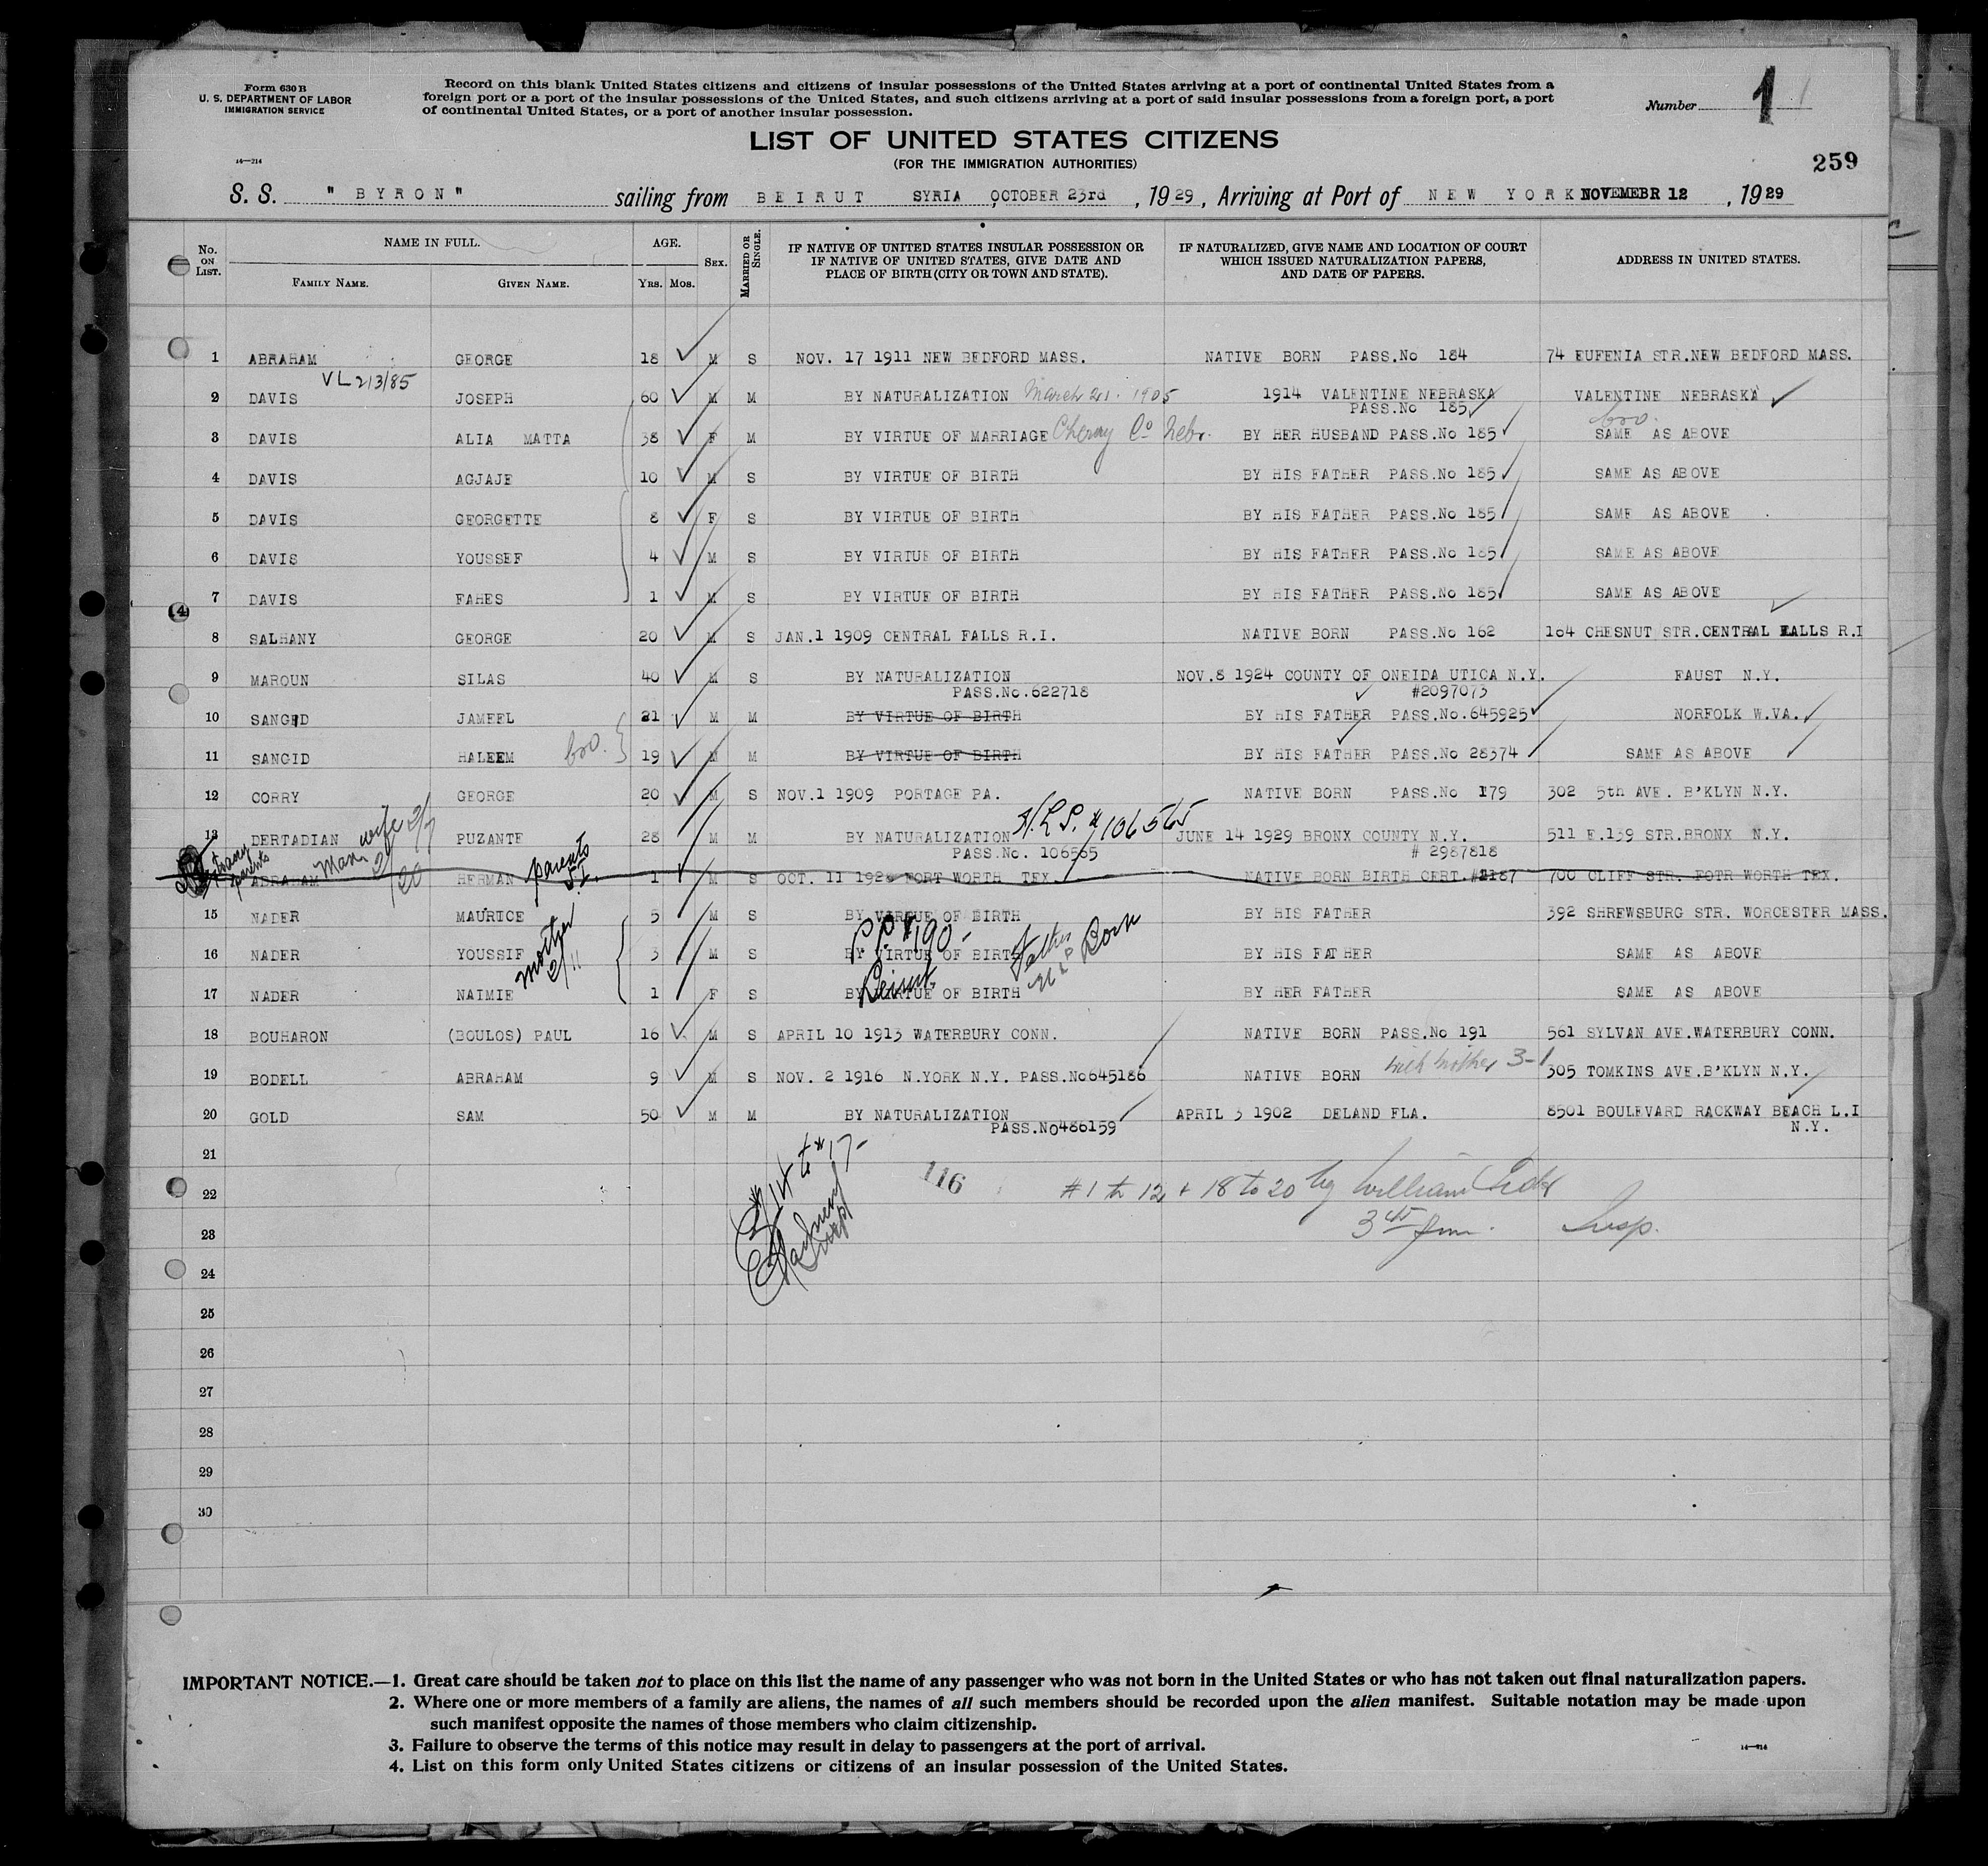 Form 630 B
U. S. DEPARTMENT OF LABOR
IMMIGRATION SERVICE
14—214
Record on this blank United States citizens and citizens of insular possessions of the United States arriving at a port of continental United States from a
foreign port or a port of the insular possessions of the United States, and such citizens arriving at a port of said insular possessions from a foreign port, a port
of continental United States, or a port of another insular possession.
Number 1 1
LIST OF UNITED STATES CITIZENS
(FOR THE IMMIGRATION AUTHORITIES)
259
S. S. " BYRON " sailing from BEIRUT SYRIA OCTOBER 23rd, 1929, Arriving at Port of NEW YORK NOVEMEBR 12, 1929
No. ON LIST. NAME IN FULL. FAMILY NAME. GIVEN NAME. AGE. YRS. MOS. SEX. MARRIED OR SINGLE. IF NATIVE OF UNITED STATES INSULAR POSSESSION OR IF NATIVE OF UNITED STATES, GIVE DATE AND PLACE OF BIRTH (CITY OR TOWN AND STATE). IF NATURALIZED, GIVE NAME AND LOCATION OF COURT WHICH ISSUED NATURALIZATION PAPERS, AND DATE OF PAPERS. ADDRESS IN UNITED STATES.
1 ABRAHAM GEORGE 18 M S NOV. 17 1911 NEW BEDFORD MASS. NATIVE BORN PASS.No 184 74 EUFENIA STR.NEW BEDFORD MASS.
VL 213/85
2 DAVIS JOSEPH 60 M M BY NATURALIZATION March 21. 1905 1914 VALENTINE NEBRASKA VALENTINE NEBRASKA
PASS.No 185
bro.
3 DAVIS ALIA MATTA 38 F M BY VIRTUE OF MARRIAGE Cherry Co Nebr. BY HER HUSBAND PASS.No 185 SAME AS ABOVE
4 DAVIS AGJAJE 10 M S BY VIRTUE OF BIRTH BY HIS FATHER PASS.No 185 SAME AS ABOVE
5 DAVIS GEORGETTE 8 F S BY VIRTUE OF BIRTH BY HIS FATHER PASS.No 185 SAME AS ABOVE
6 DAVIS YOUSSEF 4 M S BY VIRTUE OF BIRTH BY HIS FATHER PASS.No 185 SAME AS ABOVE
7 DAVIS FAHES 1 M S BY VIRTUE OF BIRTH BY HIS FATHER PASS.No 185 SAME AS ABOVE
(4)
8 SALHANY GEORGE 20 M S JAN.1 1909 CENTRAL FALLS R.I. NATIVE BORN PASS.No 162 164 CHESNUT STR.CENTRAL FALLS R.I
9 MAROUN SILAS 40 M S BY NATURALIZATION NOV.8 1924 COUNTY OF ONEIDA UTICA N.Y. FAUST N.Y.
PASS.No.622718 #2097073
10 SANGID JAMEEL 21 M M BY VIRTUE OF BIRTH BY HIS FATHER PASS.No.645925 NORFOLK W.VA.
11 SANGID HALEEM bro. 19 M M BY VIRTUE OF BIRTH BY HIS FATHER PASS.No 28374 SAME AS ABOVE
12 CORRY GEORGE 20 M S NOV.1 1909 PORTAGE PA. NATIVE BORN PASS.No 179 302 5th AVE. B'KLYN N.Y.
wife 2/7
13 DERTADIAN PUZANTE 28 M M BY NATURALIZATION #106565 JUNE 14 1929 BRONX COUNTY N.Y. 511 E.139 STR.BRONX N.Y.
PASS.No. 106565 # 2987818
parents 2/20 parents
ABRAHAM HERMAN 1 M S OCT. 11 1928 FORT WORTH TEX NATIVE BORN BIRTH CERT.#2187 700 CLIFF STR. FOTR WORTH TEX.
15 NADER MAURICE 5 M S BY VIRTUE OF BIRTH BY HIS FATHER 392 SHREWSBURG STR. WORCESTER MASS.
P.P.# 190-
16 NADER YOUSSIF mother 2/11 3 M S BY VIRTUE OF BIRTH Father Born BY HIS FATHER SAME AS ABOVE
Beirut
17 NADER NAIMIE 1 F S BY VIRTUE OF BIRTH BY HER FATHER SAME AS ABOVE
18 BOUHARON (BOULOS) PAUL 16 M S APRIL 10 1913 WATERBURY CONN. NATIVE BORN PASS.No 191 561 SYLVAN AVE.WATERBURY CONN.
with mother 3-1
19 BODELL ABRAHAM 9 M S NOV. 2 1916 N.YORK N.Y. PASS.No645186 NATIVE BORN 305 TOMKINS AVE.B'KLYN N.Y.
20 GOLD SAM 50 M M BY NATURALIZATION APRIL 3 1902 DELAND FLA. 8501 BOULEVARD RACKWAY BEACH L.I
PASS.No486159 N.Y.
21
#14 to #17-
116
22 #1 to 12 + 18 to 20 by William
23 3 45 pm. Insp.
24
25
26
27
28
29
30
IMPORTANT NOTICE.—1. Great care should be taken not to place on this list the name of any passenger who was not born in the United States or who has not taken out final naturalization papers.
2. Where one or more members of a family are aliens, the names of all such members should be recorded upon the alien manifest. Suitable notation may be made upon
such manifest opposite the names of those members who claim citizenship.
3. Failure to observe the terms of this notice may result in delay to passengers at the port of arrival.
4. List on this form only United States citizens or citizens of an insular possession of the United States.
14—214